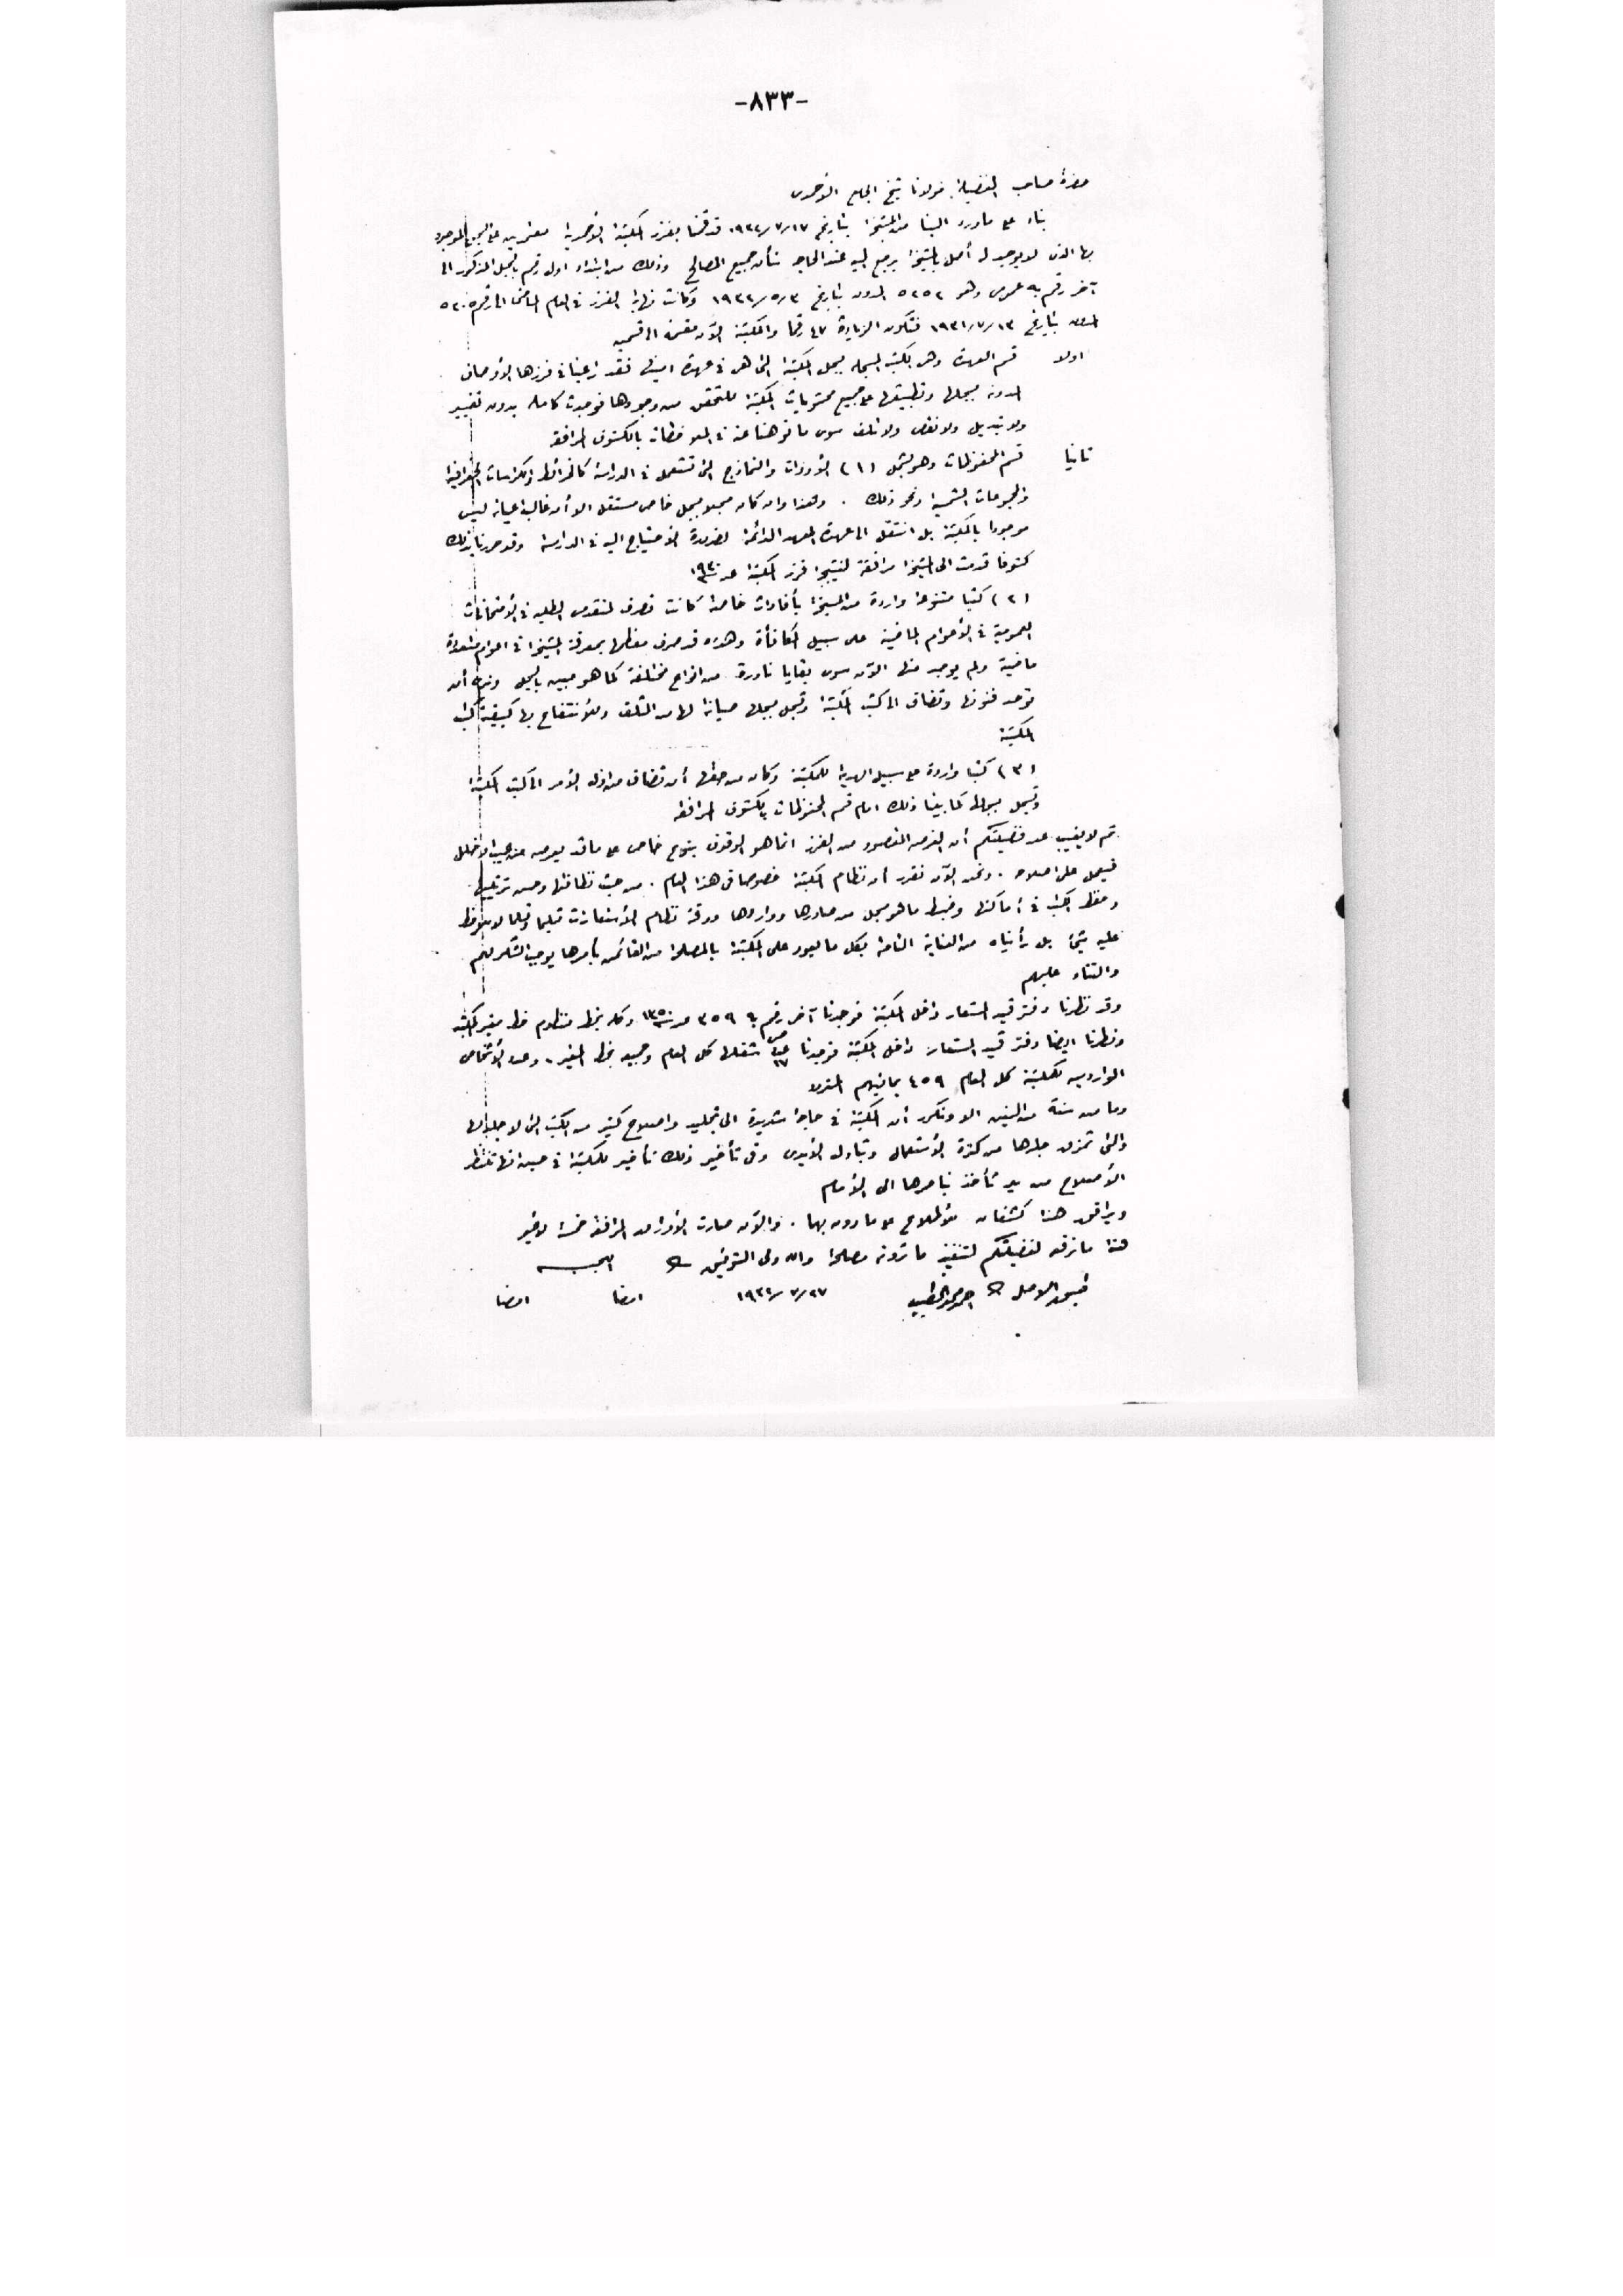 -٨٣٣-
حضرة صاحب الفضيلة مولانا شيخ الجامع الأحمدى
بناء على ما ورد الينا من المشيخة بتاريخ ١٧/ ٧/ ١٩٣٢ قد قمنا بفرز المكتبة الأحمدية معتمدين على السجل الموجود
بها الذى لا يوجد له أصل بالمشيخة يرجع اليه عند الحاجة شأن جميع المصالح وذلك من ابتداء اول رقم بالسجل المذكور الى
آخر رقم به عمومى وهو ٥٢٥٢ المدون بتاريخ ٣/ ٥/ ١٩٣٢ وكانت نهاية الفرز فى العام الماضى الى رقم ٥٢٠٥
المدون بتاريخ ١٣/ ٧/ ١٩٣١ فتكون الزيادة ٤٧ رقما والمكتبة الآن مقسمة الى قسمين
اولا قسم العهدة وهى الكتب المسجلة بسجل المكتبة التى هى فى عهدة امينها فقد راعينا فى فرزها الأوصاف
المدونة بسجلها وتطبيقها على جميع محتويات المكتبة للتحقق من وجودها فوجدت كاملة بدون تغيير
ولا تبديل ولا نقص ولا تلف سوى ما نوهنا عنه فى الملاحظات بالكشوف المرافقة
ثانيا قسم المحفوظات وهو يشمل (١) الأدوات والنماذج التى تستعمل فى الدراسة كالخرائط والكراسات الجغرافية
والمجموعات الشمسية ونحو ذلك . وهذا وان كان مسجلا بسجل خاص مستقل الا أن غالب أعيانه ليس
موجودا بالمكتبة بل انتقل الى عهدة المعهد الدائمة لضرورة الاحتياج اليه فى الدراسة وقد حررنا بذلك
كشوفا قدمت الى المشيخة مرافقة لنتيجة فرز المكتبة عن سنة ١٩٣٠
(٢) كتبا متنوعة واردة من المشيخة بأفادات خاصة كانت تصرف لمتقدمى الطلبة فى الأمتحانات
العمومية فى الأعوام الماضية على سبيل المكافأة وهذه قد صرف معظمها بمعرفة المشيخة فى اعوام متعددة
ماضية ولم يوجد منها الآن سوى بقايا نادرة من انواع مختلفة كما هو مبين بالسجل ونرى أن
توحد فنونها وتضاف الى كتب المكتبة وتسجل بسجلها صيانة لها من التلف وللأنتفاع بها كبقية كتب
المكتبة
(٣) كتبا واردة على سبيل الهدية للمكتبة وكان من حقها أن تضاف من اول الأمر الى كتب المكتبة
وتسجل بسجلها كما بينا ذلك امام قسم المحفوظات بالكشوف المرافقة
ثم لا يغيب عن فضيلتكم أن الغرض المقصود من الفرز انما هو الوقوف بنوع خاص على ما قد يعرض من عيب او خلل
فيعمل على اصلاحه . ونحن الآن نقرر أن نظام المكتبة خصوصا فى هذا العام . من حيث نظافتها وحسن ترتيبها
وحفظ الكتب فى أماكنها وضبط ما هو مسجل من صادرها وواردها ودقة نظام الأستعارات تسليما وتسلما لا يلاحظ
عليه شئ بل رأيناه من العناية التامة بكل ما يعود على المكتبة بالمصلحة من القائمين بأمرها يوجب الشكر لهم
والثناء عليهم
وقد نظرنا دفتر قيد المستعار داخل المكتبة فوجدنا آخر رقم به ٣٥٩ عن سنة ١٣٥٠ وكله بخط منظوم خط مغير المكتبة
ونظرنا ايضا دفتر قيد المستعار داخل المكتبة فوجدنا شغلت كل العام وجميعه بخط المغير . وعدد الأشخاص
الواردين للمكتبة كل العام ٤٥٩ بما فيهم
وما من سنة من السنين الا ونكرر أن المكتبة فى حاجة شديدة الى تجليد واصلاح كثير من الكتب التى لا جلد لها
والتى تمزق جلدها من كثرة الأستعمال وتبادل الأيدى وفى تأخير ذلك تأخير للمكتبة فى حين انها تنتظر
الأصلاح من يد تأخذ بناصرها الى الأمام
ويرافق هذا كشفان للأطلاع على ما دون بهما . والآن صارت الأوراق المرافقة خمسة لا غير
هذا ما نرفعه لفضيلتكم لتنفيذ ما ترونه مصلحة والله ولى التوفيق اللجنة
٢٧/ ٧/ ١٩٣٢ امضا امضا